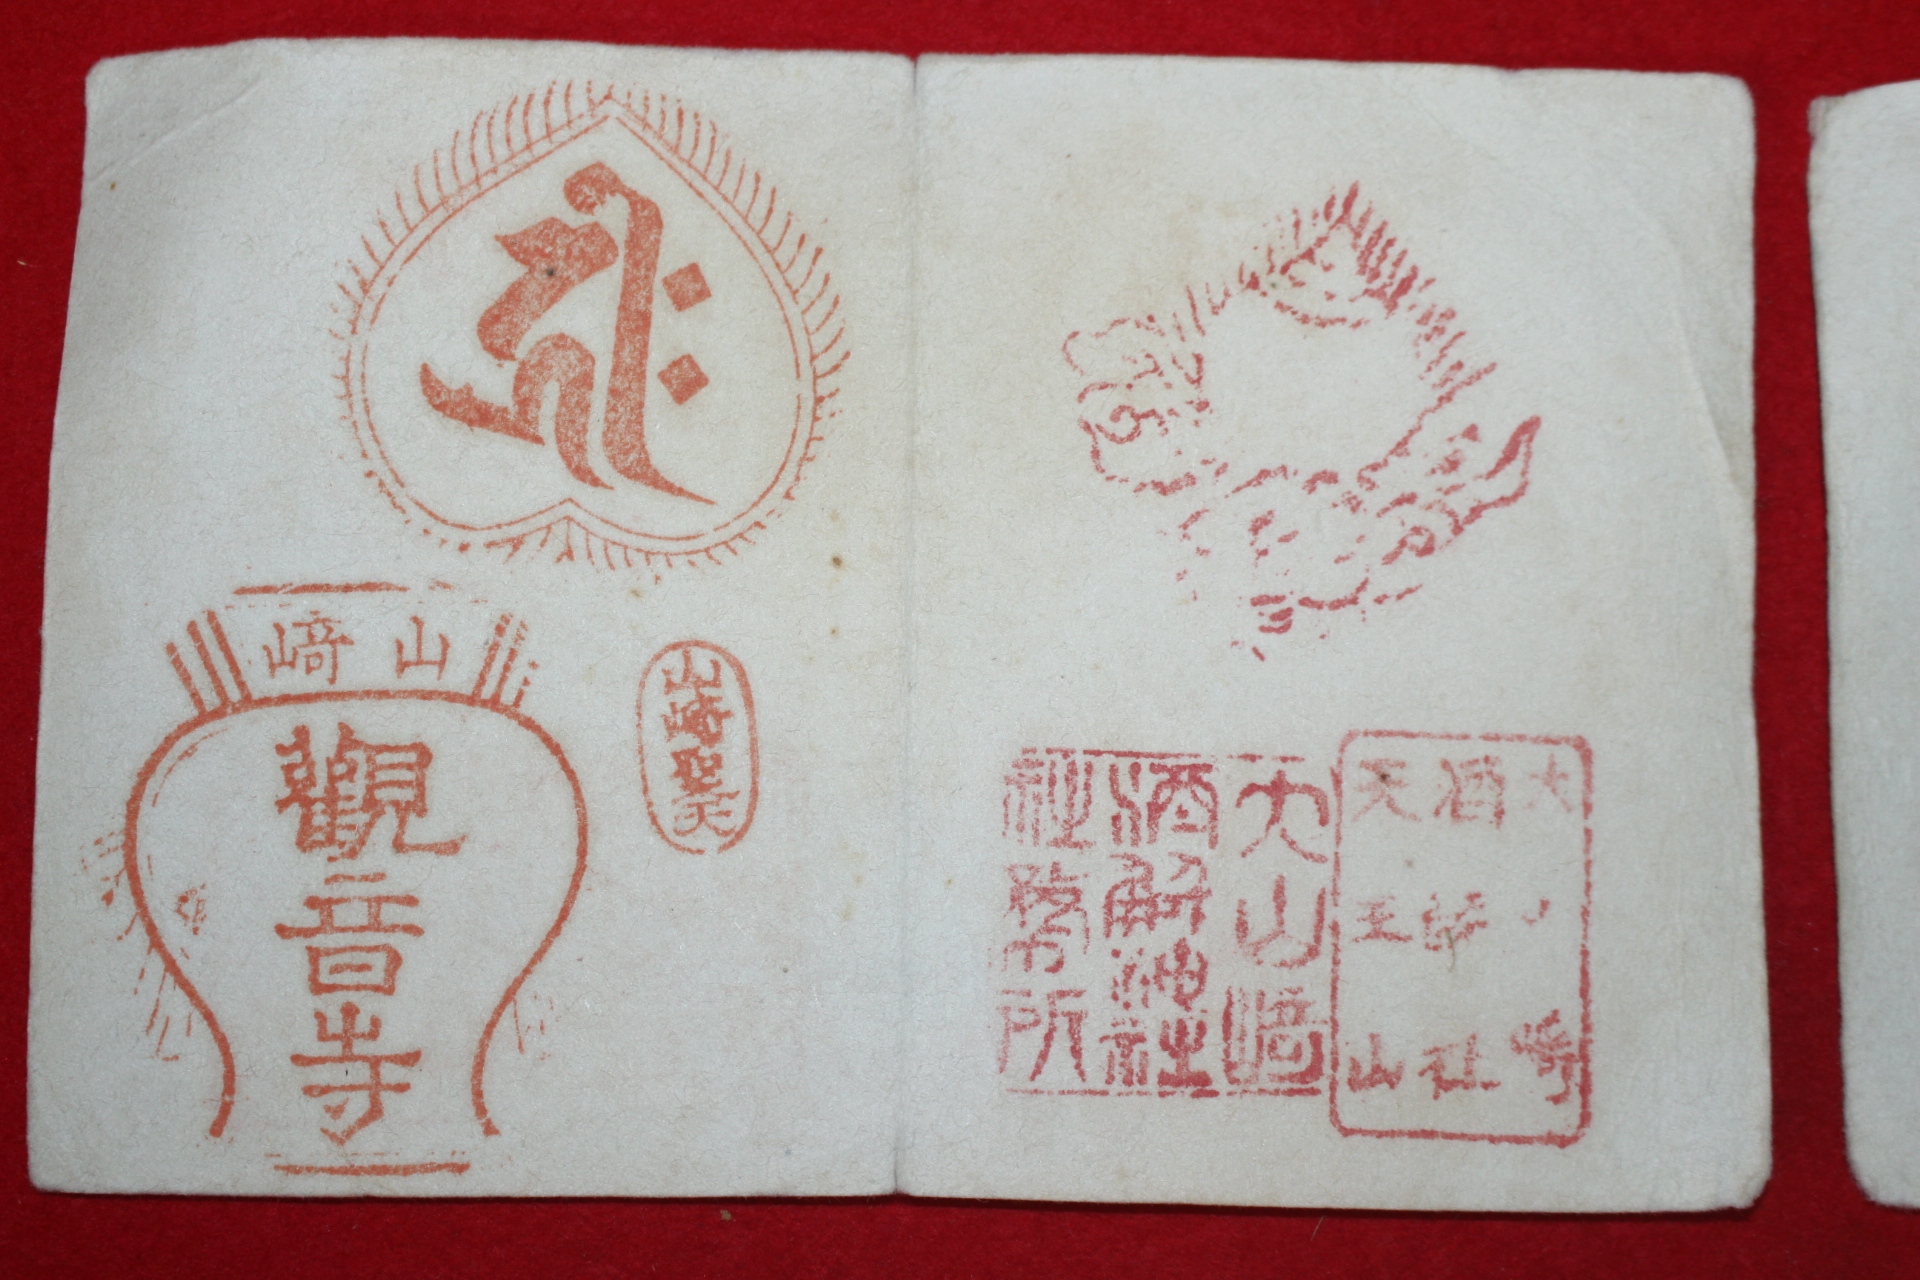 山崎
觀音寺
山崎聖天
大山崎
酒解神社
社務所
酒解社
天王山